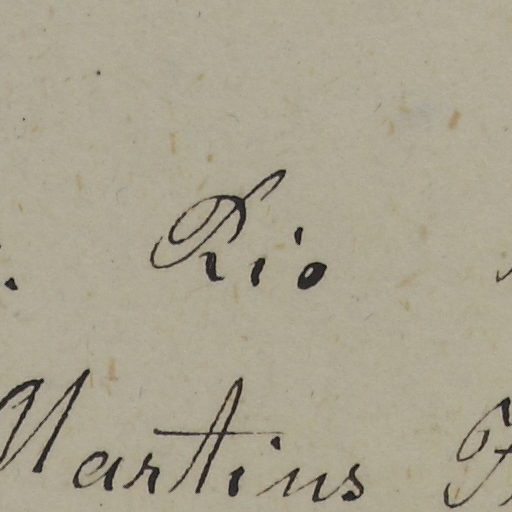 Rio
Martins